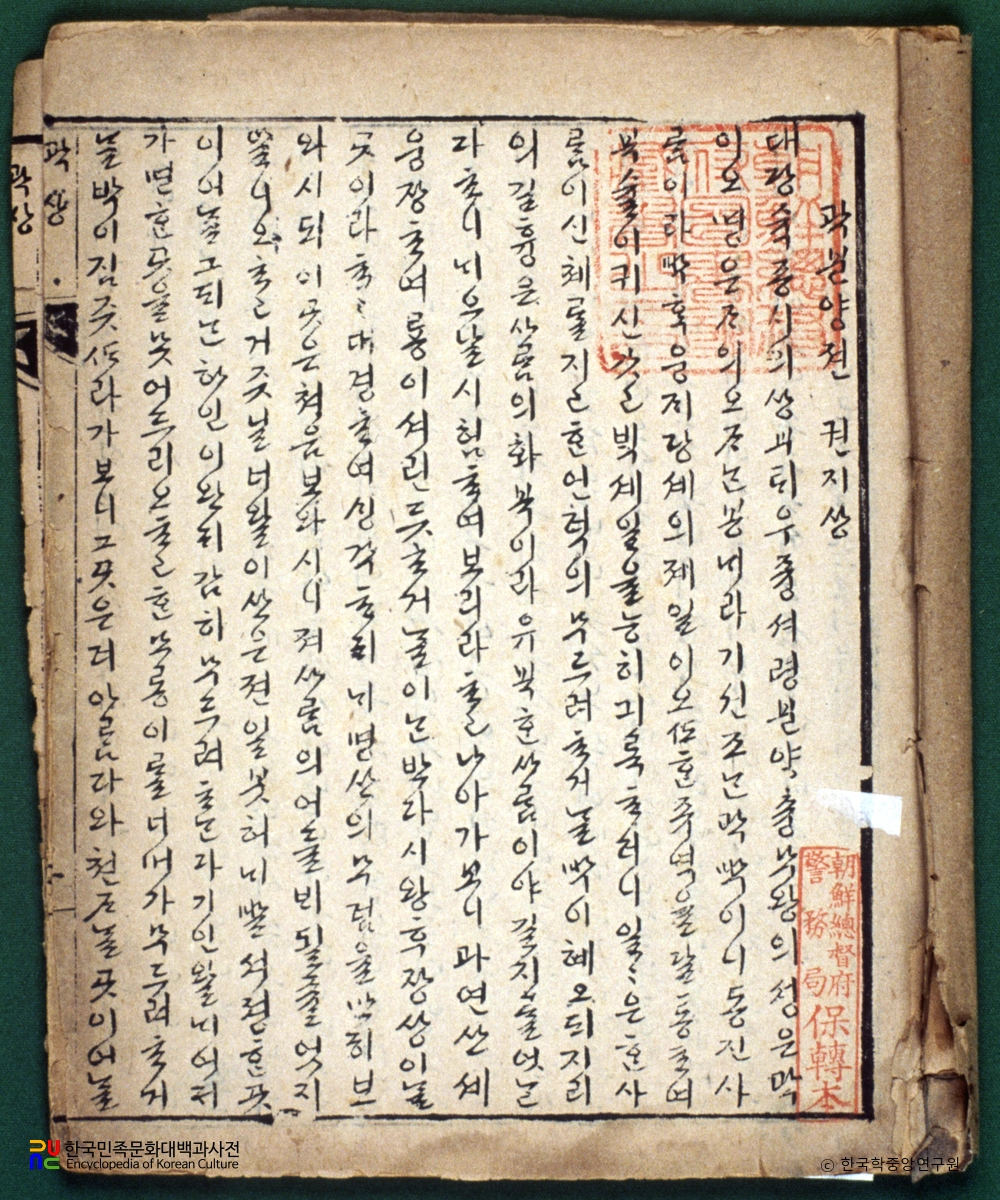 곽분양젼 권지샹
대당슉죵시의 상 태우 즁셔령 분양 츙무왕의 셩은 곽
이오 명은 ᄌᆞ의오 ᄌᆞᄂᆞᆫ 봉내라 기션조난 이니 동진 사
ᄅᆞᆷ이라 당셰의 졔일이오 ᄯᅩᄒᆞᆫ 쥬역을 달통ᄒᆞ여
복슐이 귀신 ᄀᆞᆺ고 ᄇᆡᆨ셰 일을 능히 긔록ᄒᆞ더니 일〻은 ᄒᆞᆫ 사
ᄅᆞᆷ이 신체를 지고 ᄒᆞᆫ 언덕의 무드려 ᄒᆞ거ᄂᆞᆯ 이 혜오되 지리
의 길흉은 사ᄅᆞᆷ의 화복이라 유복ᄒᆞᆫ 사ᄅᆞᆷ이야 길지ᄅᆞᆯ 엇ᄂᆞᆫ
다 ᄒᆞ니 시험ᄒᆞ여 보리라 ᄒᆞ고 나아가 보니 과연 산셰
웅장ᄒᆞ여 룡이 셔린 듯ᄒᆞ거ᄂᆞᆯ 이ᄂᆞᆫ 왕후장상이 날
곳이라 ᄒᆞ고 대경ᄒᆞ여 ᄉᆡᆼ각ᄒᆞ되 내 명산의 무덤을 만히 보
와시되 이 곳은 쳐음 보와시니 져 사ᄅᆞᆷ의 엇지
ᄒᆞ고 거즛 닐너 왈 이 산은 젼일 졍ᄒᆞᆫ 곳
이어ᄂᆞᆯ 그ᄃᆡᄂᆞᆫ 하인이완ᄃᆡ 감히 무드려 ᄒᆞᄂᆞᆫ다 기인 왈 내 어ᄃᆡ
가면 ᄒᆞᆫ 곳을 못 어드리오 ᄒᆞ고 ᄒᆞᆫ 모롱이를 너머가 무드려 ᄒᆞ거
ᄂᆞᆯ 박이 짐즛 ᄯᅡ라가 보니 그 곳은 더 아ᄅᆞᆷ다와 쳔ᄌᆞ 날 곳이어ᄂᆞᆯ
곽샹
곽샹
朝鮮總督府
警務局
保轉本
한국민족문화대백과사전
Encyclopedia of Korean Culture
© 한국학중앙연구원